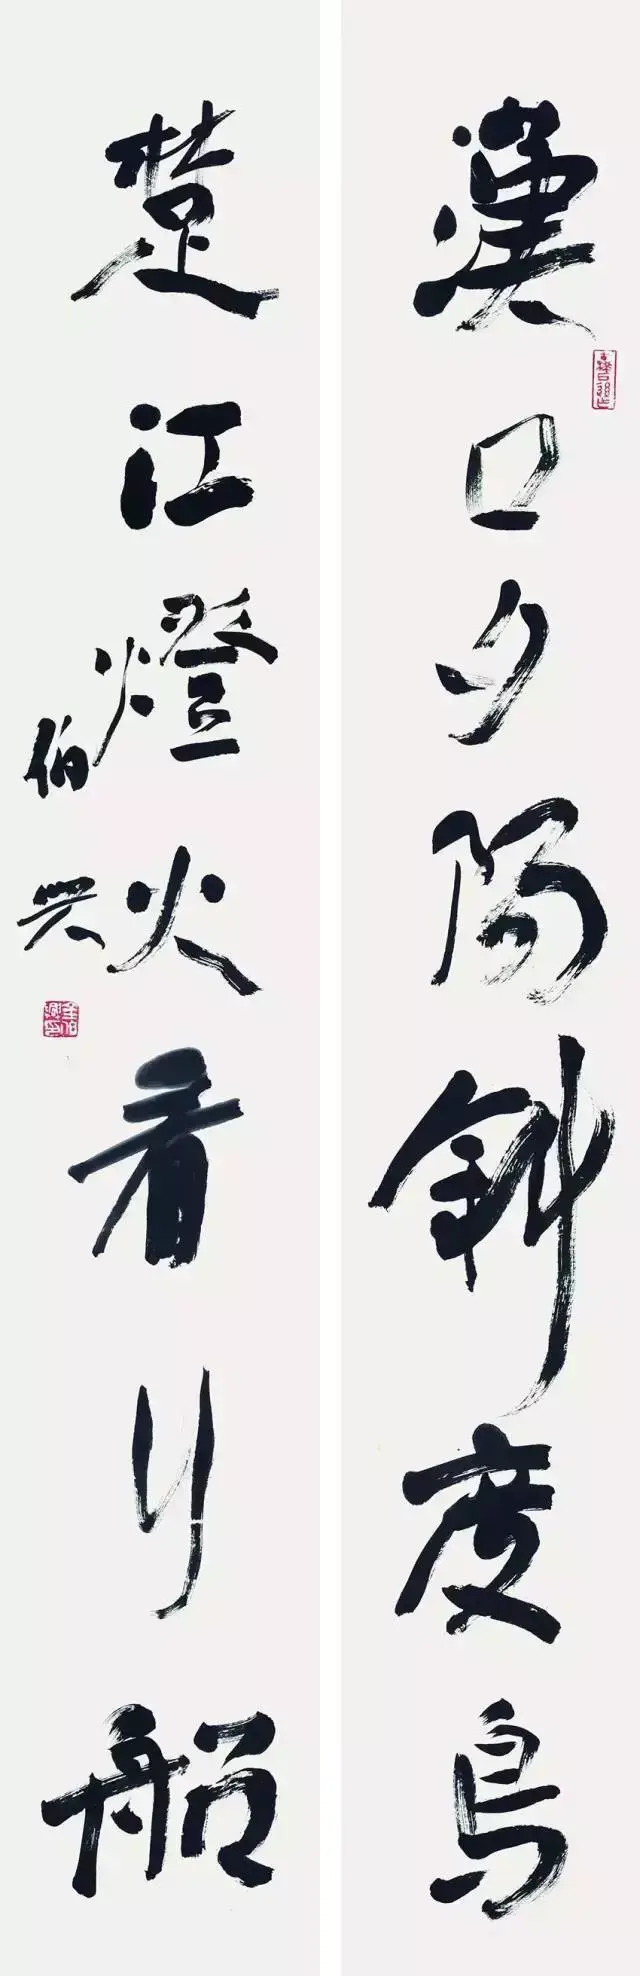 漢口夕陽斜度鳥
楚江燈火看行船
伯兴